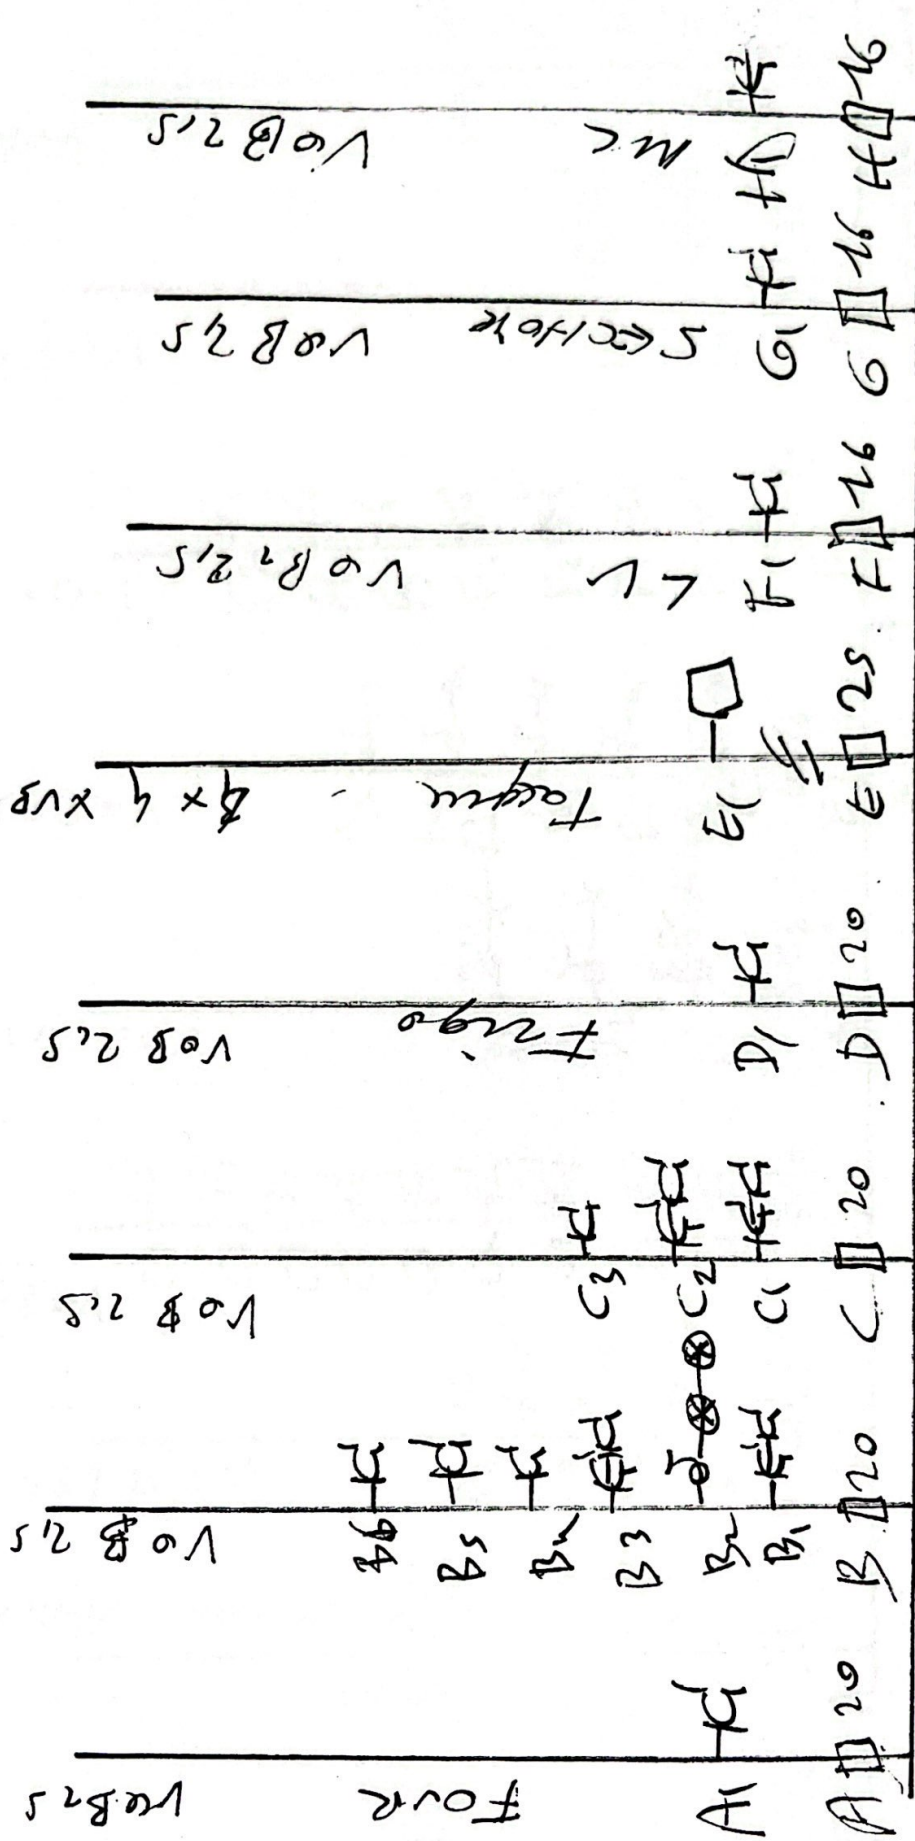 A 20
A1
FOUR
VOB 2,5
B 20
B1
B2
B3
B4
B5
B6
VOB 2,5
C 20
C1
C2
C3
VOB 2,5
D 20
D1
Frigo
VOB 2,5
E 25
E1
Taque
4 x 4 XVB
F 16
F1
LV
VOB 2,5
G 16
G1
SECHOIR
VOB 2,5
H 16
H1
VOB 2,5